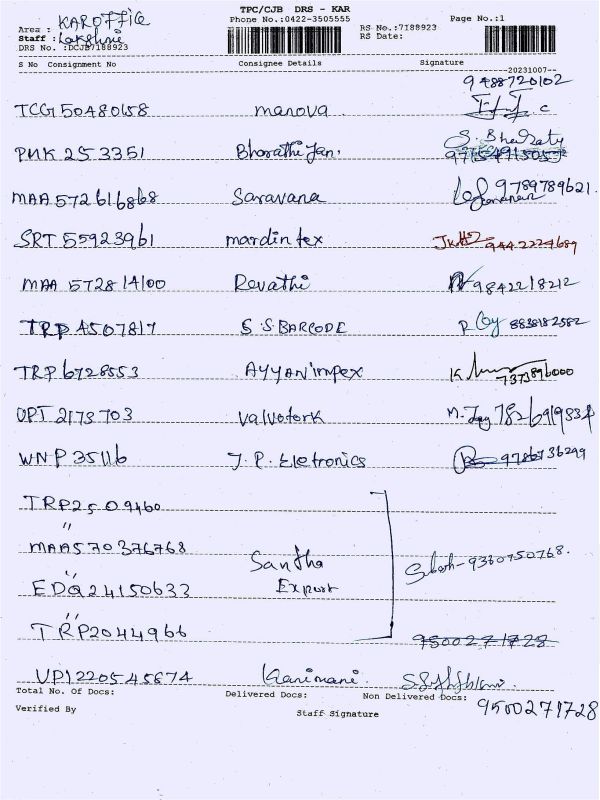 TPC/CJB DRS - KAR
Area : KAROFFIC
Phone No.:0422-3505555
RS No.:7188923
Page No.:1
Staff : Lakshmi
RS Date:
DRS No. :DCJB7188923
S No Consignment No Consignee Details Signature
20231007
9488720102
TCG50480658 manova
S. Bharaty
PNK 253351 Bharathi Jan.
MAA 572616868 Saravana 9789789621
SRT 55923961 mardin tex 9442224689
MAA 572814100 Revathi 9842218212
TRP 4507817 S.S.BARCODE 8838182582
TRP 6728553 AYYAN impex K 7373896000
OPT 2173703 valvotork
WNP 35116 J.P. Eletronics 9786736299
TRP2509460
"
MAA570376768 Santha 9360750768.
EDQ24150633 Export
"
TRP2044966 9500271728
VPI220545674 Kanimani.
Total No. Of Docs: Delivered Docs: Non Delivered Docs:
9500271728
Verified By Staff Signature